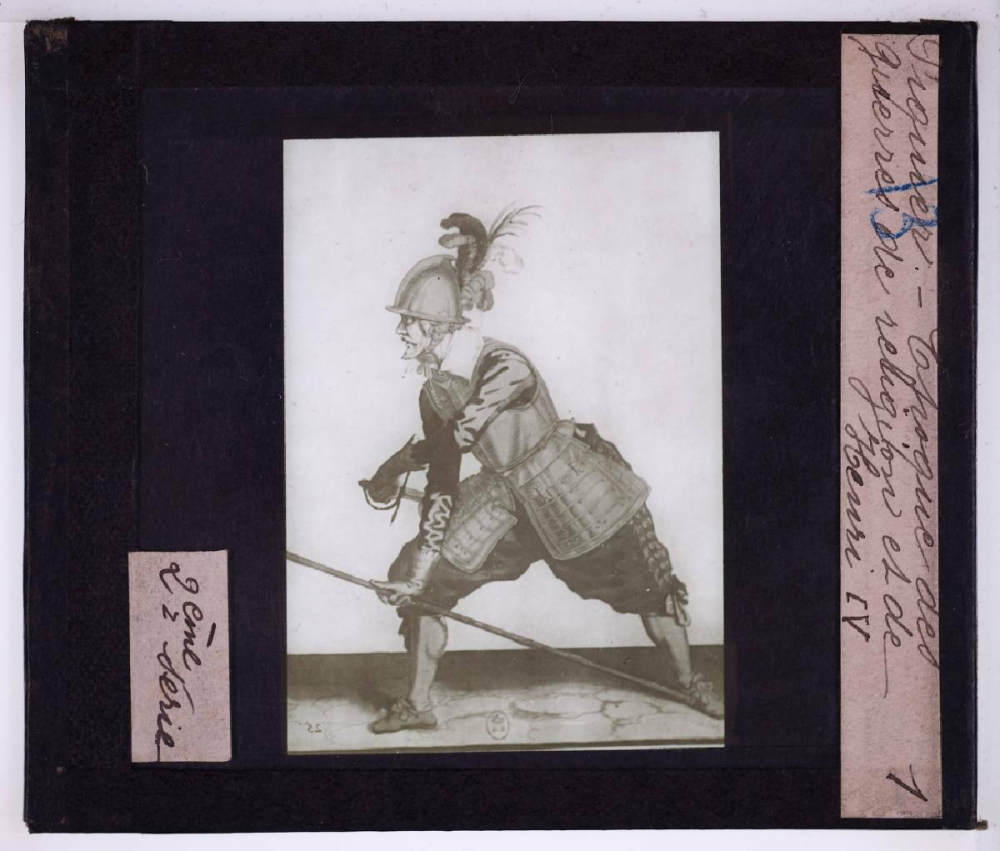 Piquier. - Epoque des
guerres de religion et de
Henri IV
1
13
2ème
Série